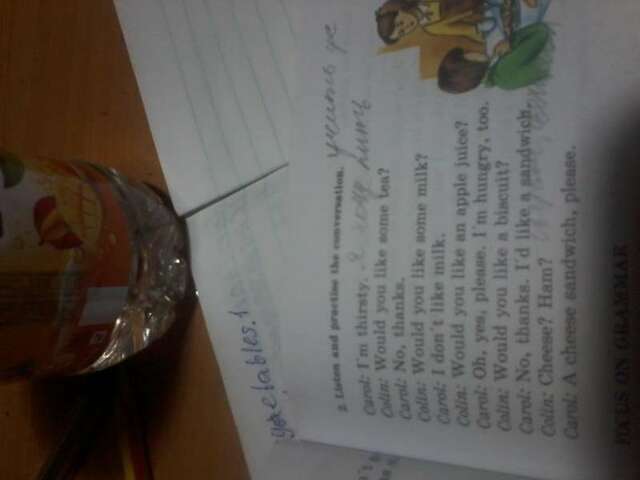 2. Listen and practise the conversation.
Carol: I'm thirsty. я хочу пить
Colin: Would you like some tea?
Carol: No, thanks.
Colin: Would you like some milk?
Carol: I don't like milk.
Colin: Would you like an apple juice?
Carol: Oh, yes, please. I'm hungry, too.
Colin: Would you like a biscuit?
Carol: No, thanks. I'd like a sandwich.
Colin: Cheese? Ham?
Carol: A cheese sandwich, please.
FOCUS ON GRAMMAR